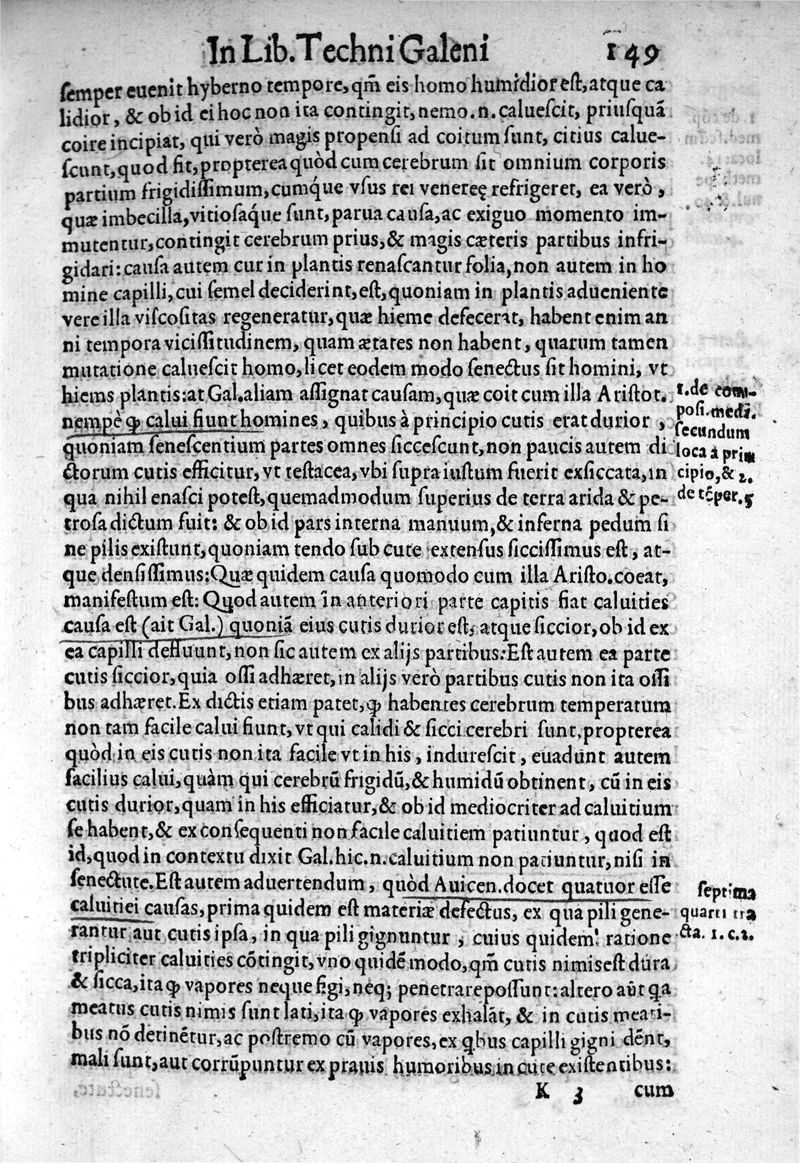 In Lib. Techni Galeni 149
semper euenit hyberno tempore, qm̄ eis homo humidior est, atque ca
lidior, & ob id ei hoc non ita contingit, nemo .n. caluescit, priusquā
coire incipiat, qui verò magis propensi ad coitum sunt, citius calue-
scunt, quod fit, propterea quòd cum cerebrum sit omnium corporis
partium frigidissimum, cumq́ue vsus rei venereę refrigeret, ea verò,
quæ imbecilla, vitiosaq́ue sunt, parua causa, ac exiguo momento im-
mutentur, contingit cerebrum prius, & magis cæteris partibus infri-
gidari: causa autem cur in plantis renascantur folia, non autem in ho
mine capilli, cui semel deciderint, est, quoniam in plantis adueniente
vere illa viscositas regeneratur, quæ hieme defecerat, habent enim an
ni tempora vicissitudinem, quam ætates non habent, quarum tamen
mutatione caluescit homo, licet eodem modo senectus sit homini, vt
hiems plantis: at Gal. aliam assignat causam, quæ coit cum illa Aristot.
nempè ꝙ calui fiunt homines, quibus à principio cutis erat durior,
quoniam senescentium partes omnes siccescunt, non paucis autem di
ctorum cutis efficitur, vt testacea, vbi supra iustum fuerit exsiccata, in
qua nihil enasci potest, quemadmodum superius de terra arida & pe-
trosa dictum fuit: & ob id pars interna manuum, & inferna pedum si
ne pilis existunt, quoniam tendo sub cute extensus siccissimus est, at-
que densissimus: Quæ quidem causa quomodo cum illa Aristo. coeat,
manifestum est: Quod autem in anteriori parte capitis fiat caluities
causa est (ait Gal.) quoniā eius cutis durior est, atque siccior, ob id ex
ea capilli defluunt, non sic autem ex alijs partibus: Est autem ea parte
cutis siccior, quia ossi adhæret, in alijs verò partibus cutis non ita ossi
bus adhæret. Ex dictis etiam patet, ꝙ habentes cerebrum temperatum
non tam facile calui fiunt, vt qui calidi & sicci cerebri sunt, propterea
quòd in eis cutis non ita facile vt in his, indurescit, euadunt autem
facilius calui, quàm qui cerebrū frigidū, & humidū obtinent, cū in eis
cutis durior, quam in his efficiatur, & ob id mediocriter ad caluitium
se habent, & ex consequenti non facile caluitiem patiuntur, quod est
id, quod in contextu dixit Gal. hic .n. caluitium non patiuntur, nisi in
senectute. Est autem aduertendum, quòd Auicen. docet quatuor esse
caluitiei causas, prima quidem est materiæ defectus, ex qua pili gene-
rantur aut cutis ipsa, in qua pili gignuntur, cuius quidem ratione
tripliciter caluities cōtingit, vno quidē modo, qm̄ cutis nimis est dura
& sicca, ita ꝙ vapores neque figi, neq; penetrare possunt: altero aūt qa
meatus cutis nimis sunt lati, ita ꝙ vapores exhalāt, & in cutis meati-
bus nō detinētur, ac postremo cū vapores, ex qbus capilli gigni dēnt,
mali sunt, aut corrūpuntur ex prauis humoribus in cute existentibus:
K 3 cum
1. de com-
posi. medi.
secundum
loca à prin
cipio, & 2.
de tēper. 5
septima
quarti tra
cta. 1. c. 2.